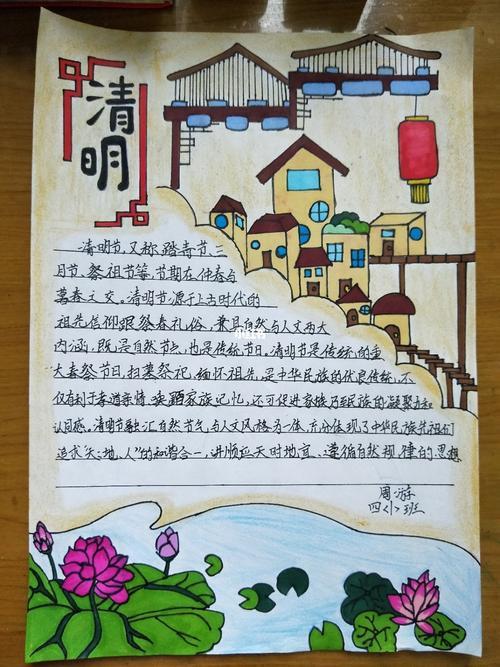 清明
清明节,又称踏青节、三
月节、祭祖节等,节期在仲春与
暮春之交。清明节源于上古时代的
祖先信仰跟祭春礼俗,兼具自然与人文两大
内涵,既是自然节点,也是传统节日,清明节是传统的重
大春祭节日,扫墓祭祀、缅怀祖先,是中华民族的优良传统,不
仅有利于孝道亲情、唤醒家族记忆,还可促进家族乃至民族的凝聚力和
认同感。清明节融汇自然节气与人文风俗为一体,充分体现了中华民族先祖们
追求“天、地、人”的和谐合一,讲顺应天时地宜、遵循自然规律的思想
周游
四〈1〉班
小红书